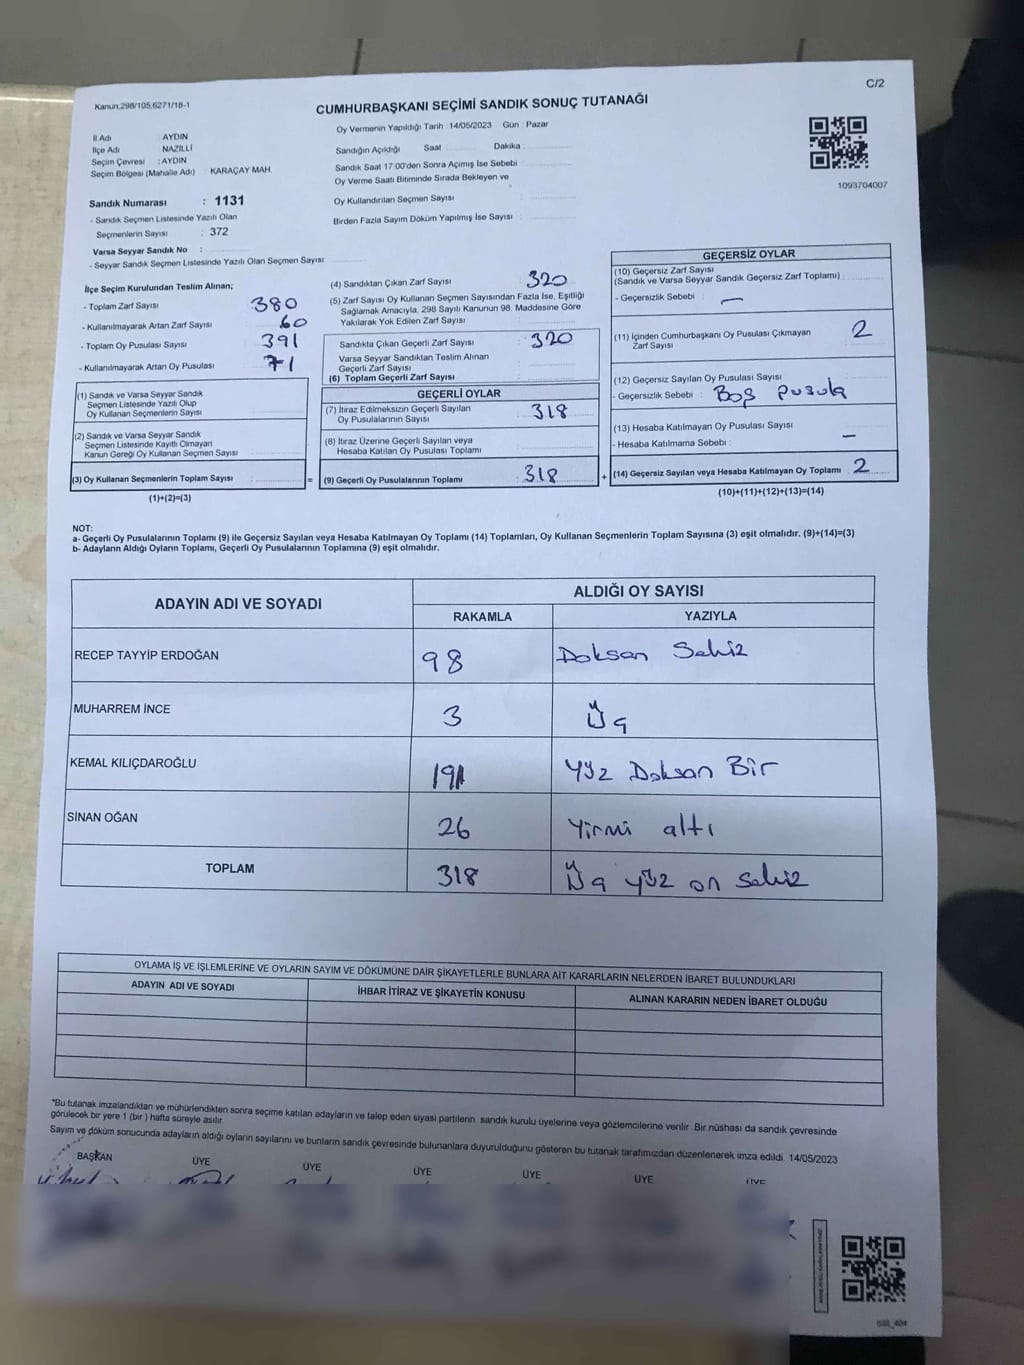 C/2
Kanun,298/105,6271/18-1
CUMHURBAŞKANI SEÇİMİ SANDIK SONUÇ TUTANAĞI
Oy Vermenin Yapıldığı Tarih : 14/05/2023 Gün : Pazar
İl Adı AYDIN
İlçe Adı NAZİLLİ
Seçim Çevresi : AYDIN
Seçim Bölgesi (Mahalle Adı) KARAÇAY MAH.
Sandığın Açıldığı Saat Dakika
Sandık Saat 17:00'den Sonra Açımış İse Sebebi
Oy Verme Saati Bitiminde Sırada Bekleyen ve
Oy Kullandırılan Seçmen Sayısı
Birden Fazla Sayım Döküm Yapılmış İse Sayısı
1093704007
Sandık Numarası : 1131
- Sandık Seçmen Listesinde Yazılı Olan
Seçmenlerin Sayısı : 372
Varsa Seyyar Sandık No :
- Seyyar Sandık Seçmen Listesinde Yazılı Olan Seçmen Sayısı
İlçe Seçim Kurulundan Teslim Alınan;
- Toplam Zarf Sayısı 380
- Kullanılmayarak Artan Zarf Sayısı 60
- Toplam Oy Pusulası Sayısı 391
- Kullanılmayarak Artan Oy Pusulası 71
(1) Sandık ve Varsa Seyyar Sandık
Seçmen Listesinde Yazılı Olup
Oy Kullanan Seçmenlerin Sayısı
(2) Sandık ve Varsa Seyyar Sandık
Seçmen Listesinde Kayıtlı Olmayan
Kanun Gereği Oy Kullanan Seçmen Sayısı
(3) Oy Kullanan Seçmenlerin Toplam Sayısı =
(1)+(2)=(3)
(4) Sandıktan Çıkan Zarf Sayısı : 320
(5) Zarf Sayısı Oy Kullanan Seçmen Sayısından Fazla İse, Eşitliği
Sağlamak Amacıyla, 298 Sayılı Kanunun 98. Maddesine Göre
Yakılarak Yok Edilen Zarf Sayısı
Sandıkta Çıkan Geçerli Zarf Sayısı : 320
Varsa Seyyar Sandıktan Teslim Alınan
Geçerli Zarf Sayısı
(6) Toplam Geçerli Zarf Sayısı
GEÇERLİ OYLAR
(7) İtiraz Edilmeksizin Geçerli Sayılan
Oy Pusulalarının Sayısı : 318
(8) İtiraz Üzerine Geçerli Sayılan veya
Hesaba Katılan Oy Pusulası Toplamı
(9) Geçerli Oy Pusulalarının Toplamı : 318 +
GEÇERSİZ OYLAR
(10) Geçersiz Zarf Sayısı
(Sandık ve Varsa Seyyar Sandık Geçersiz Zarf Toplamı)
- Geçersizlik Sebebi : —
(11) İçinden Cumhurbaşkanı Oy Pusulası Çıkmayan
Zarf Sayısı 2
(12) Geçersiz Sayılan Oy Pusulası Sayısı
- Geçersizlik Sebebi : Boş pusula
(13) Hesaba Katılmayan Oy Pusulası Sayısı
- Hesaba Katılmama Sebebi : —
(14) Geçersiz Sayılan veya Hesaba Katılmayan Oy Toplamı : 2
(10)+(11)+(12)+(13)=(14)
NOT:
a- Geçerli Oy Pusulalarının Toplamı (9) ile Geçersiz Sayılan veya Hesaba Katılmayan Oy Toplamı (14) Toplamları, Oy Kullanan Seçmenlerin Toplam Sayısına (3) eşit olmalıdır. (9)+(14)=(3)
b- Adayların Aldığı Oyların Toplamı, Geçerli Oy Pusulalarının Toplamına (9) eşit olmalıdır.
ADAYIN ADI VE SOYADI ALDIĞI OY SAYISI
RAKAMLA YAZIYLA
RECEP TAYYİP ERDOĞAN 98 Doksan Sekiz
MUHARREM İNCE 3 Üç
KEMAL KILIÇDAROĞLU 191 Yüz Doksan Bir
SİNAN OĞAN 26 Yirmi altı
TOPLAM 318 Üç yüz on sekiz
OYLAMA İŞ VE İŞLEMLERİNE VE OYLARIN SAYIM VE DÖKÜMÜNE DAİR ŞİKAYETLERLE BUNLARA AİT KARARLARIN NELERDEN İBARET BULUNDUKLARI
ADAYIN ADI VE SOYADI İHBAR İTİRAZ VE ŞİKAYETİN KONUSU ALINAN KARARIN NEDEN İBARET OLDUĞU
*Bu tutanak imzalandıktan ve mühürlendikten sonra seçime katılan adayların ve talep eden siyasi partilerin sandık kurulu üyelerine veya gözlemcilerine verilir. Bir nüshası da sandık çevresinde
görülecek bir yere 1 (bir) hafta süreyle asılır.
Sayım ve döküm sonucunda adayların aldığı oyların sayılarını ve bunların sandık çevresinde bulunanlara duyurulduğunu gösteren bu tutanak tarafımızdan düzenlenerek imza edildi. 14/05/2023
BAŞKAN ÜYE ÜYE ÜYE ÜYE ÜYE ÜYE